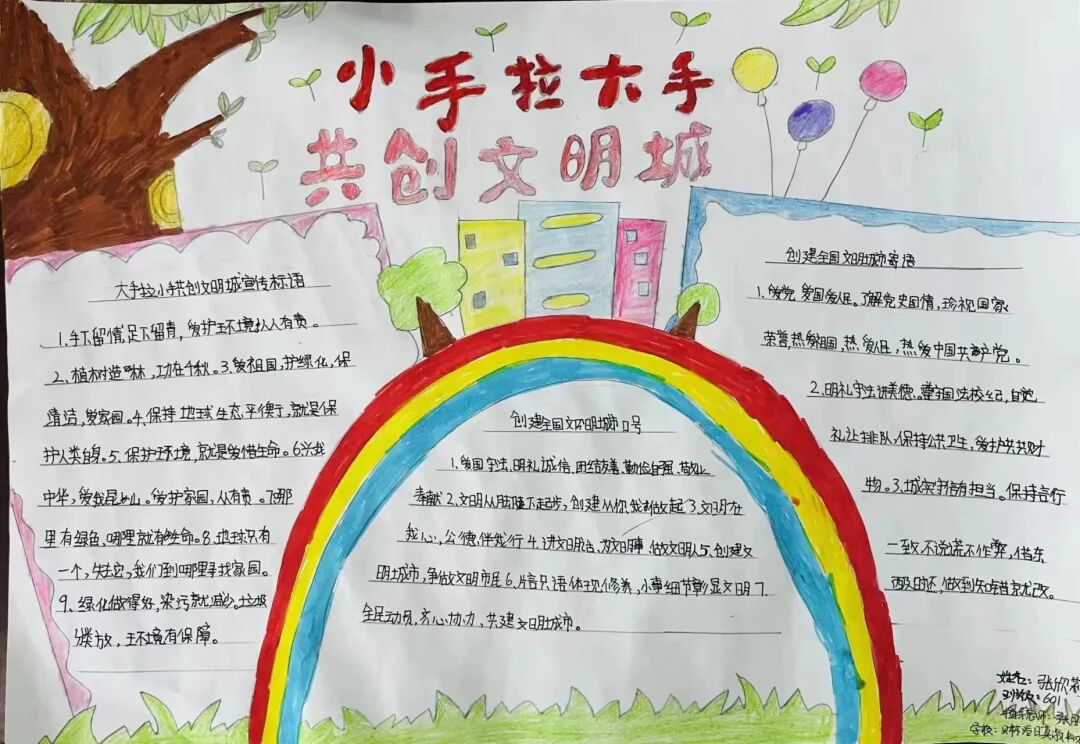 小手拉大手
共创文明城
大手拉小手共创文明城宣传标语
1、手下留情,足下留青,爱护环境,人人有责。
2、植树造林,功在千秋。3、爱祖国,护绿化,保
清洁,爱家园。4、保持地球生态平衡,就是保
护人类自身。5、保护环境,就是爱惜生命。6兴我
中华,爱我昆山。爱护家园,人有责。7哪
里有绿色,哪里就有生命。8、地球只有
一个,失去它,我们到哪里寻找家园。
9、绿化做得好,染污就减少。垃圾
分类放,环境有保障。
创建全国文明城市口号
1、爱国守法,明礼诚信,团结友善,勤俭自强,敬业
奉献2、文明从脚下起步,创建从你我做起3文明在
我心,公德伴我行4、讲文明话、做文明人5、创建文
明城市,争做文明市民6、片言只语体现修养,小事细节彰显文明7、
全民动员,齐心协力,共建文明城市。
创建全国文明城市寄语
1、爱党爱国爱民。了解党史国情,珍视国家
荣誉,热爱祖国,热爱人民,热爱中国共产党。
2、明礼守法讲美德。遵守国法校纪,自觉
礼让排队,保持公共卫生,爱护公共财
物。3、诚实守信有担当。保持言行
一致,不说谎不作弊,借东
西及时还,做到知错就改。
姓名:张欣
班级:601
指导老师:张
学校: